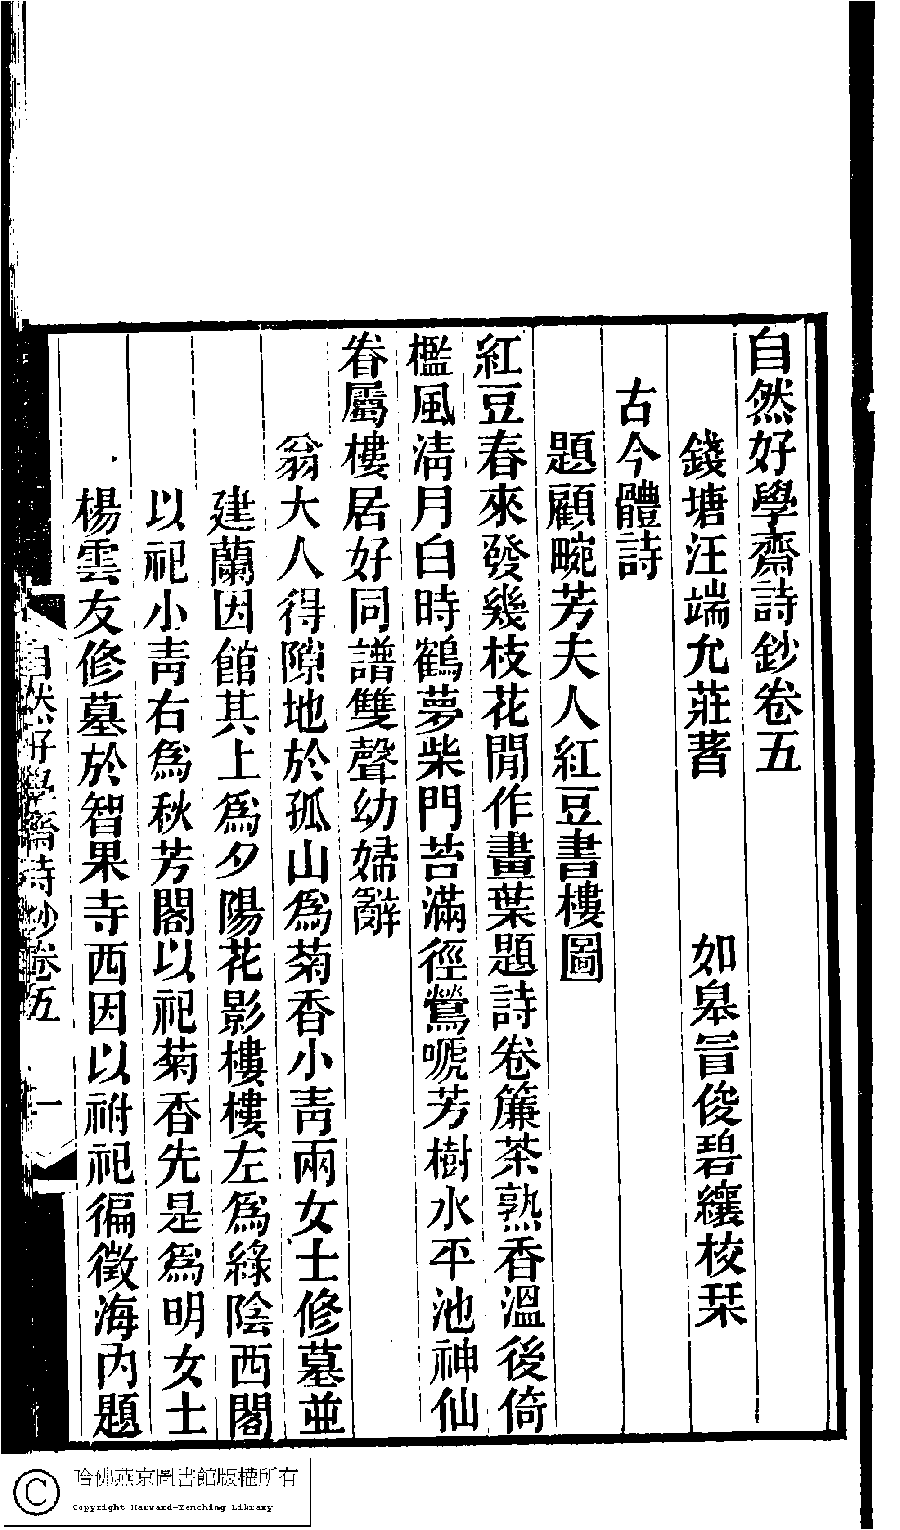 自然好學齋詩鈔卷五
錢塘汪端允莊著　如皋冒俊碧纕校栞
古今體詩
題顧畹芳夫人紅豆書樓圖
紅豆春來發幾枝花閒作畫葉題詩卷簾茶熟香溫後倚
檻風淸月白時鶴夢柴門苔滿徑鶯嗁芳樹水平池神仙
眷屬樓居好同譜雙聲幼婦辭
翁大人得隙地於孤山爲菊香小靑兩女士修墓並
建蘭因館其上爲夕陽花影樓樓左爲綠陰西閣
以祀小靑右爲秋芳閣以祀菊香先是爲明女士
楊雲友修墓於智果寺西因以祔祀徧徵海內題
自然好學齋詩鈔卷五
一
哈佛燕京圖書館版權所有
Copyright Harvard-Yenching Library